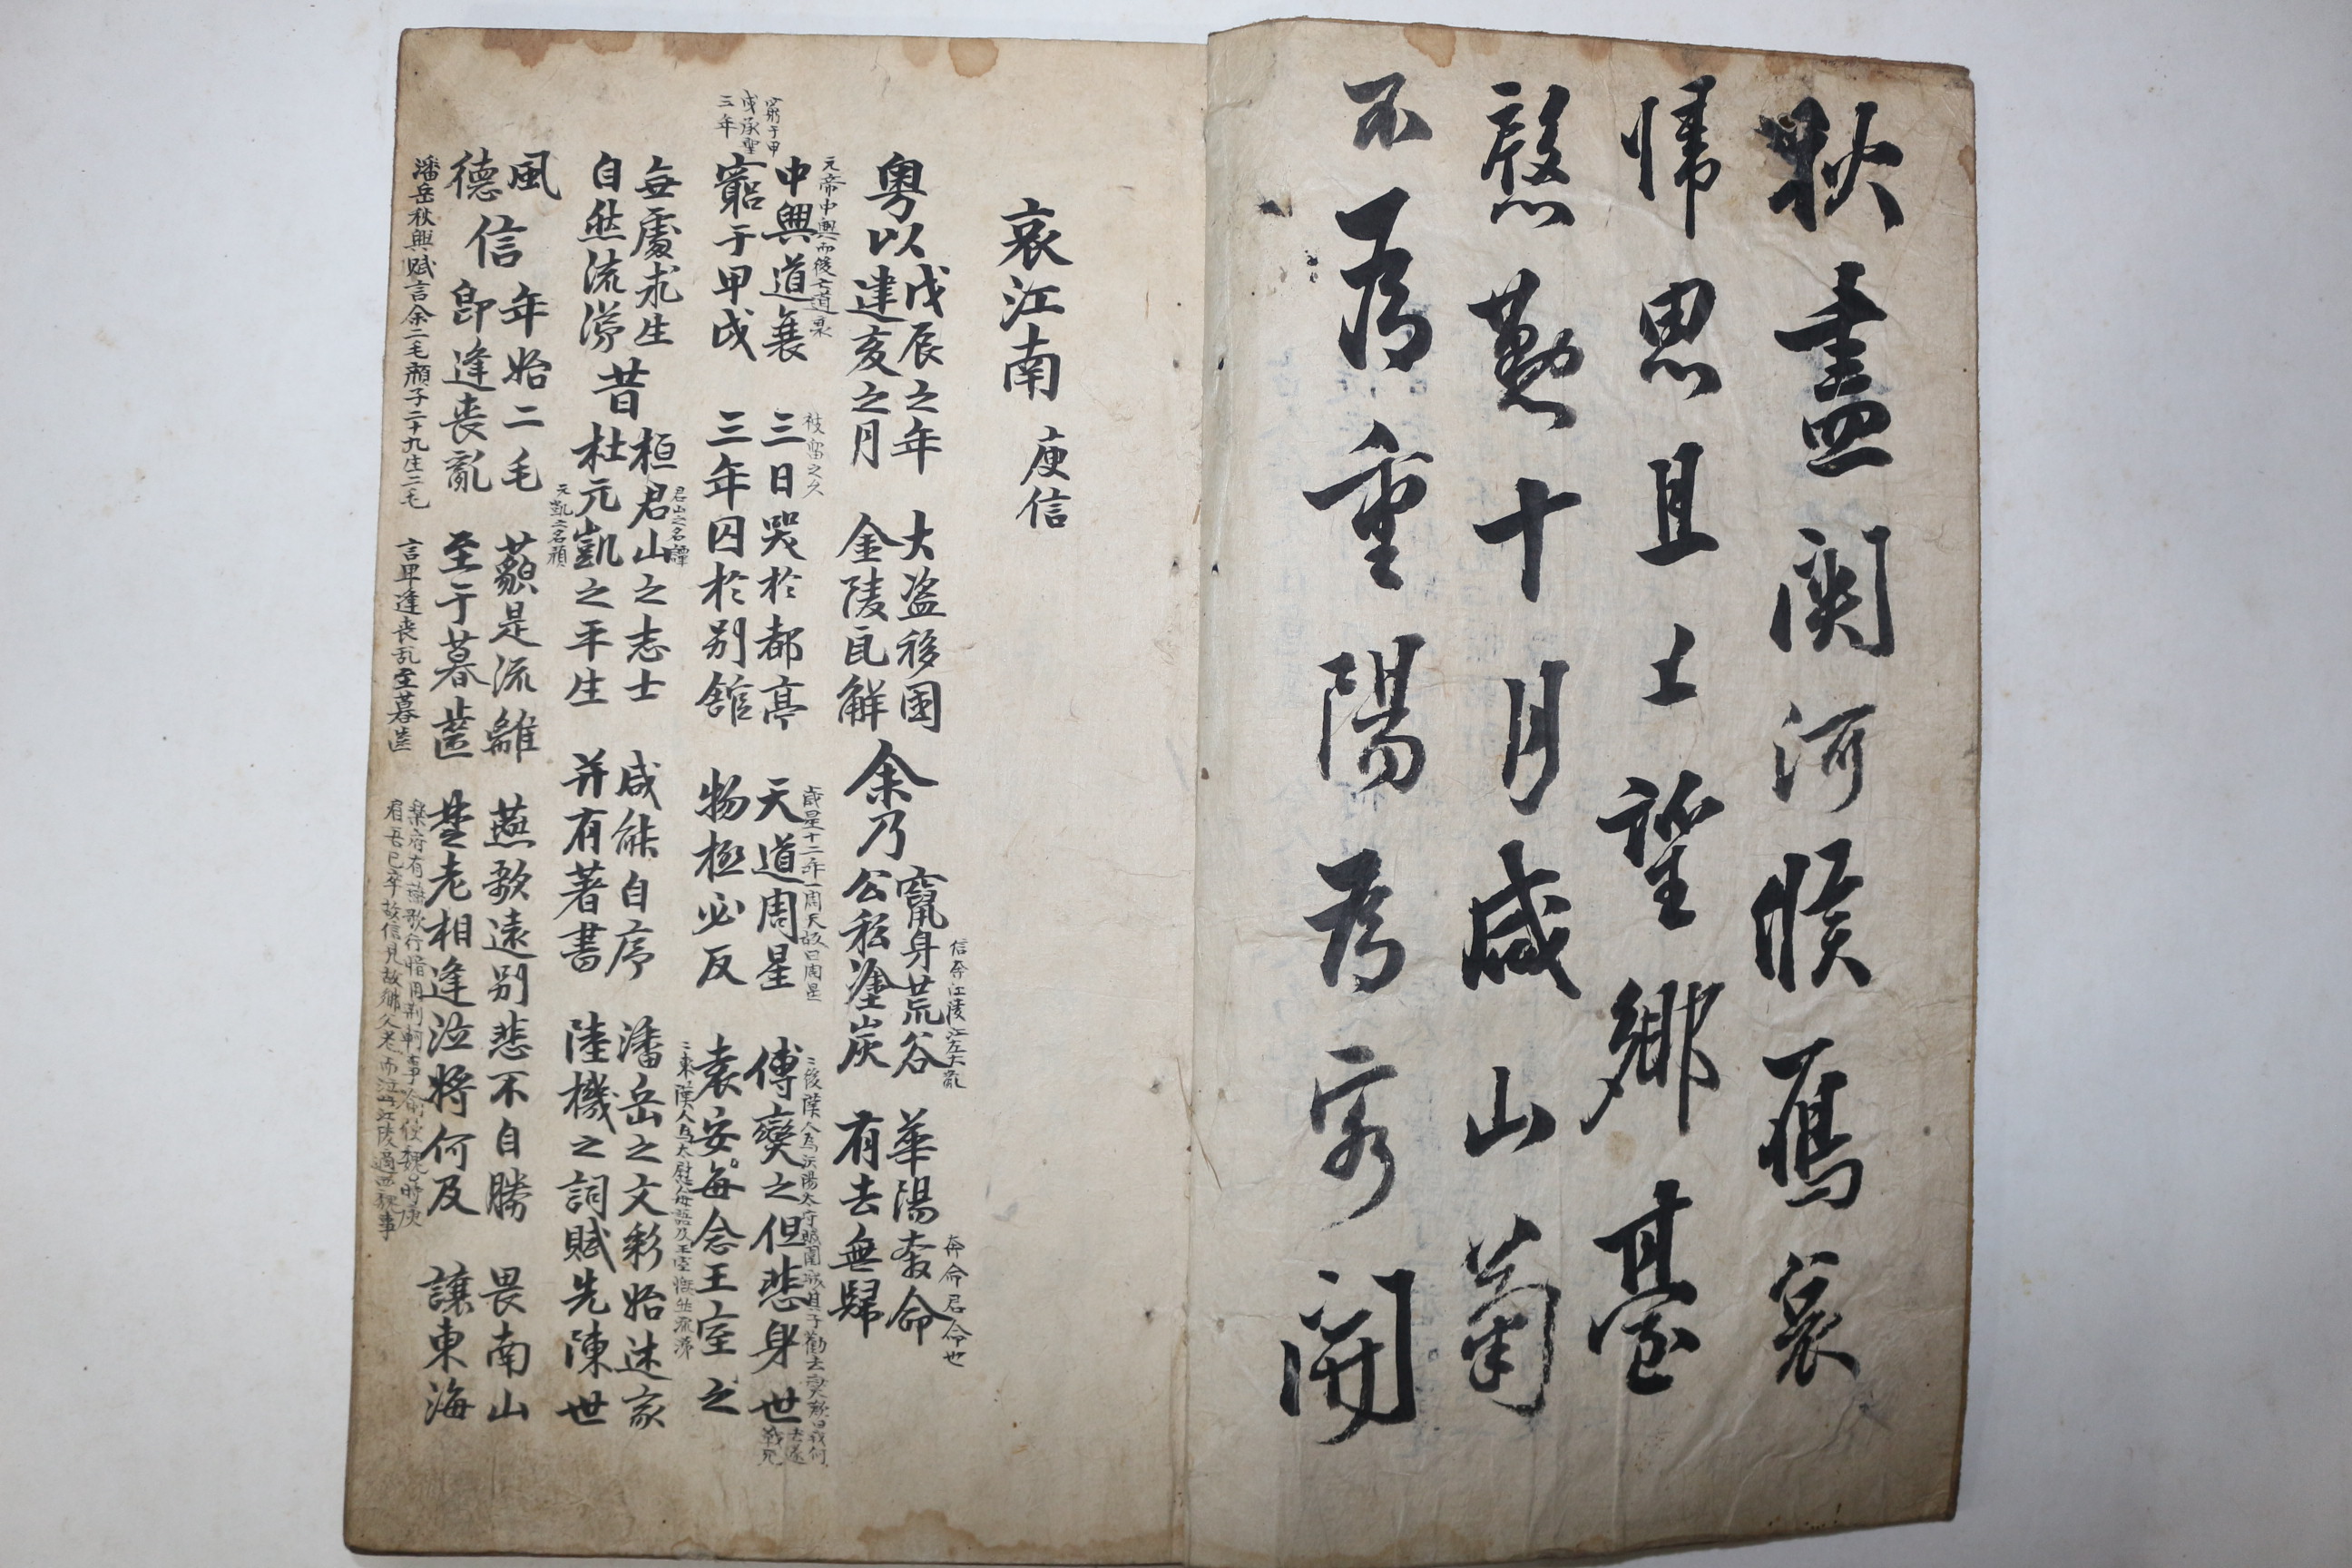 秋盡関河候鴈哀
歸思且上望鄕臺
慇懃十月咸山菊
不爲重陽爲客開
哀江南 庾信
粤以戊辰之年
建亥之月
大盗移國
金陵瓦解
余乃竄身荒谷
信奔江陵江左大亂
公私塗炭
華陽奔命
奔命君命也
有去無歸
中興道衰
元帝中興而復言道衰
窮于甲戌
窮于甲戌承聖三年
三日哭於都亭
被留之久
三年囚於別舘
天道周星
歲星十二年一周天故曰周星
物極必反
傅燮之但悲身世
後漢人爲漢陽太守賊圍城其子勸去燮歎曰我何去遂戰死
袁安每念王室之
東漢人爲太慰每語及王室慨然流涕
無處求生
自然流涕
昔桓君山之志士
君山之名譚
杜元凱之平生
元凱之名預
咸能自序
并有著書
潘岳之文彩始述家風
陸機之詞賦先陳世德
信年始二毛
潘岳秋興賦言余二毛顔子二十九生二毛
即逢喪亂
藐是流離
至于暮齒
言早逢丧乱至暮齒
燕歌遠別悲不自勝
楚老相逢泣將何及
畏南山
讓東海